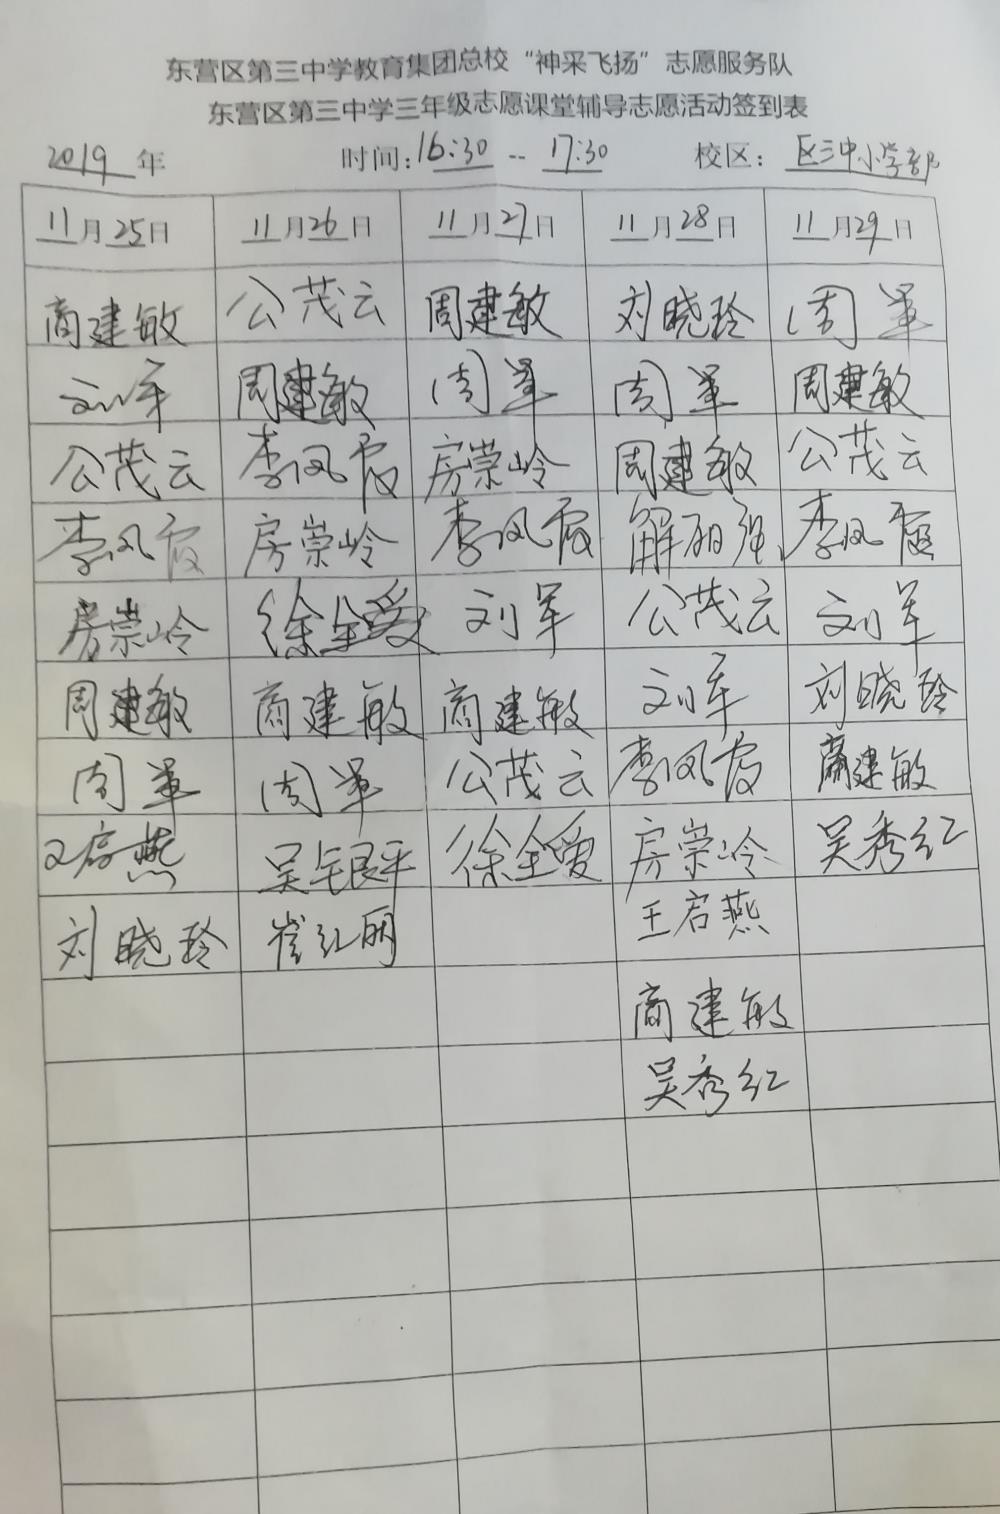 东营区第三中学教育集团总校“神采飞扬”志愿服务队
东营区第三中学三年级志愿课堂辅导志愿活动签到表
2019 年 时间:16:30 -- 17:30 校区: 区三中小学部
11月25日 11月26日 11月27日 11月28日 11月29日
商建敏 公茂云 周建敏 刘晓玲 周军
刘军 周建敏 周军 周军 周建敏
公茂云 李凤霞 房崇岭 周建敏 公茂云
李凤霞 房崇岭 李凤霞 解丽强 李凤霞
房崇岭 徐全爱 刘军 公茂云 刘军
周建敏 商建敏 商建敏 刘军 刘晓玲
周军 周军 公茂云 李凤霞 商建敏
王启燕 吴银平 徐全爱 房崇岭 吴秀红
刘晓玲 崔红丽 王启燕
商建敏
吴秀红